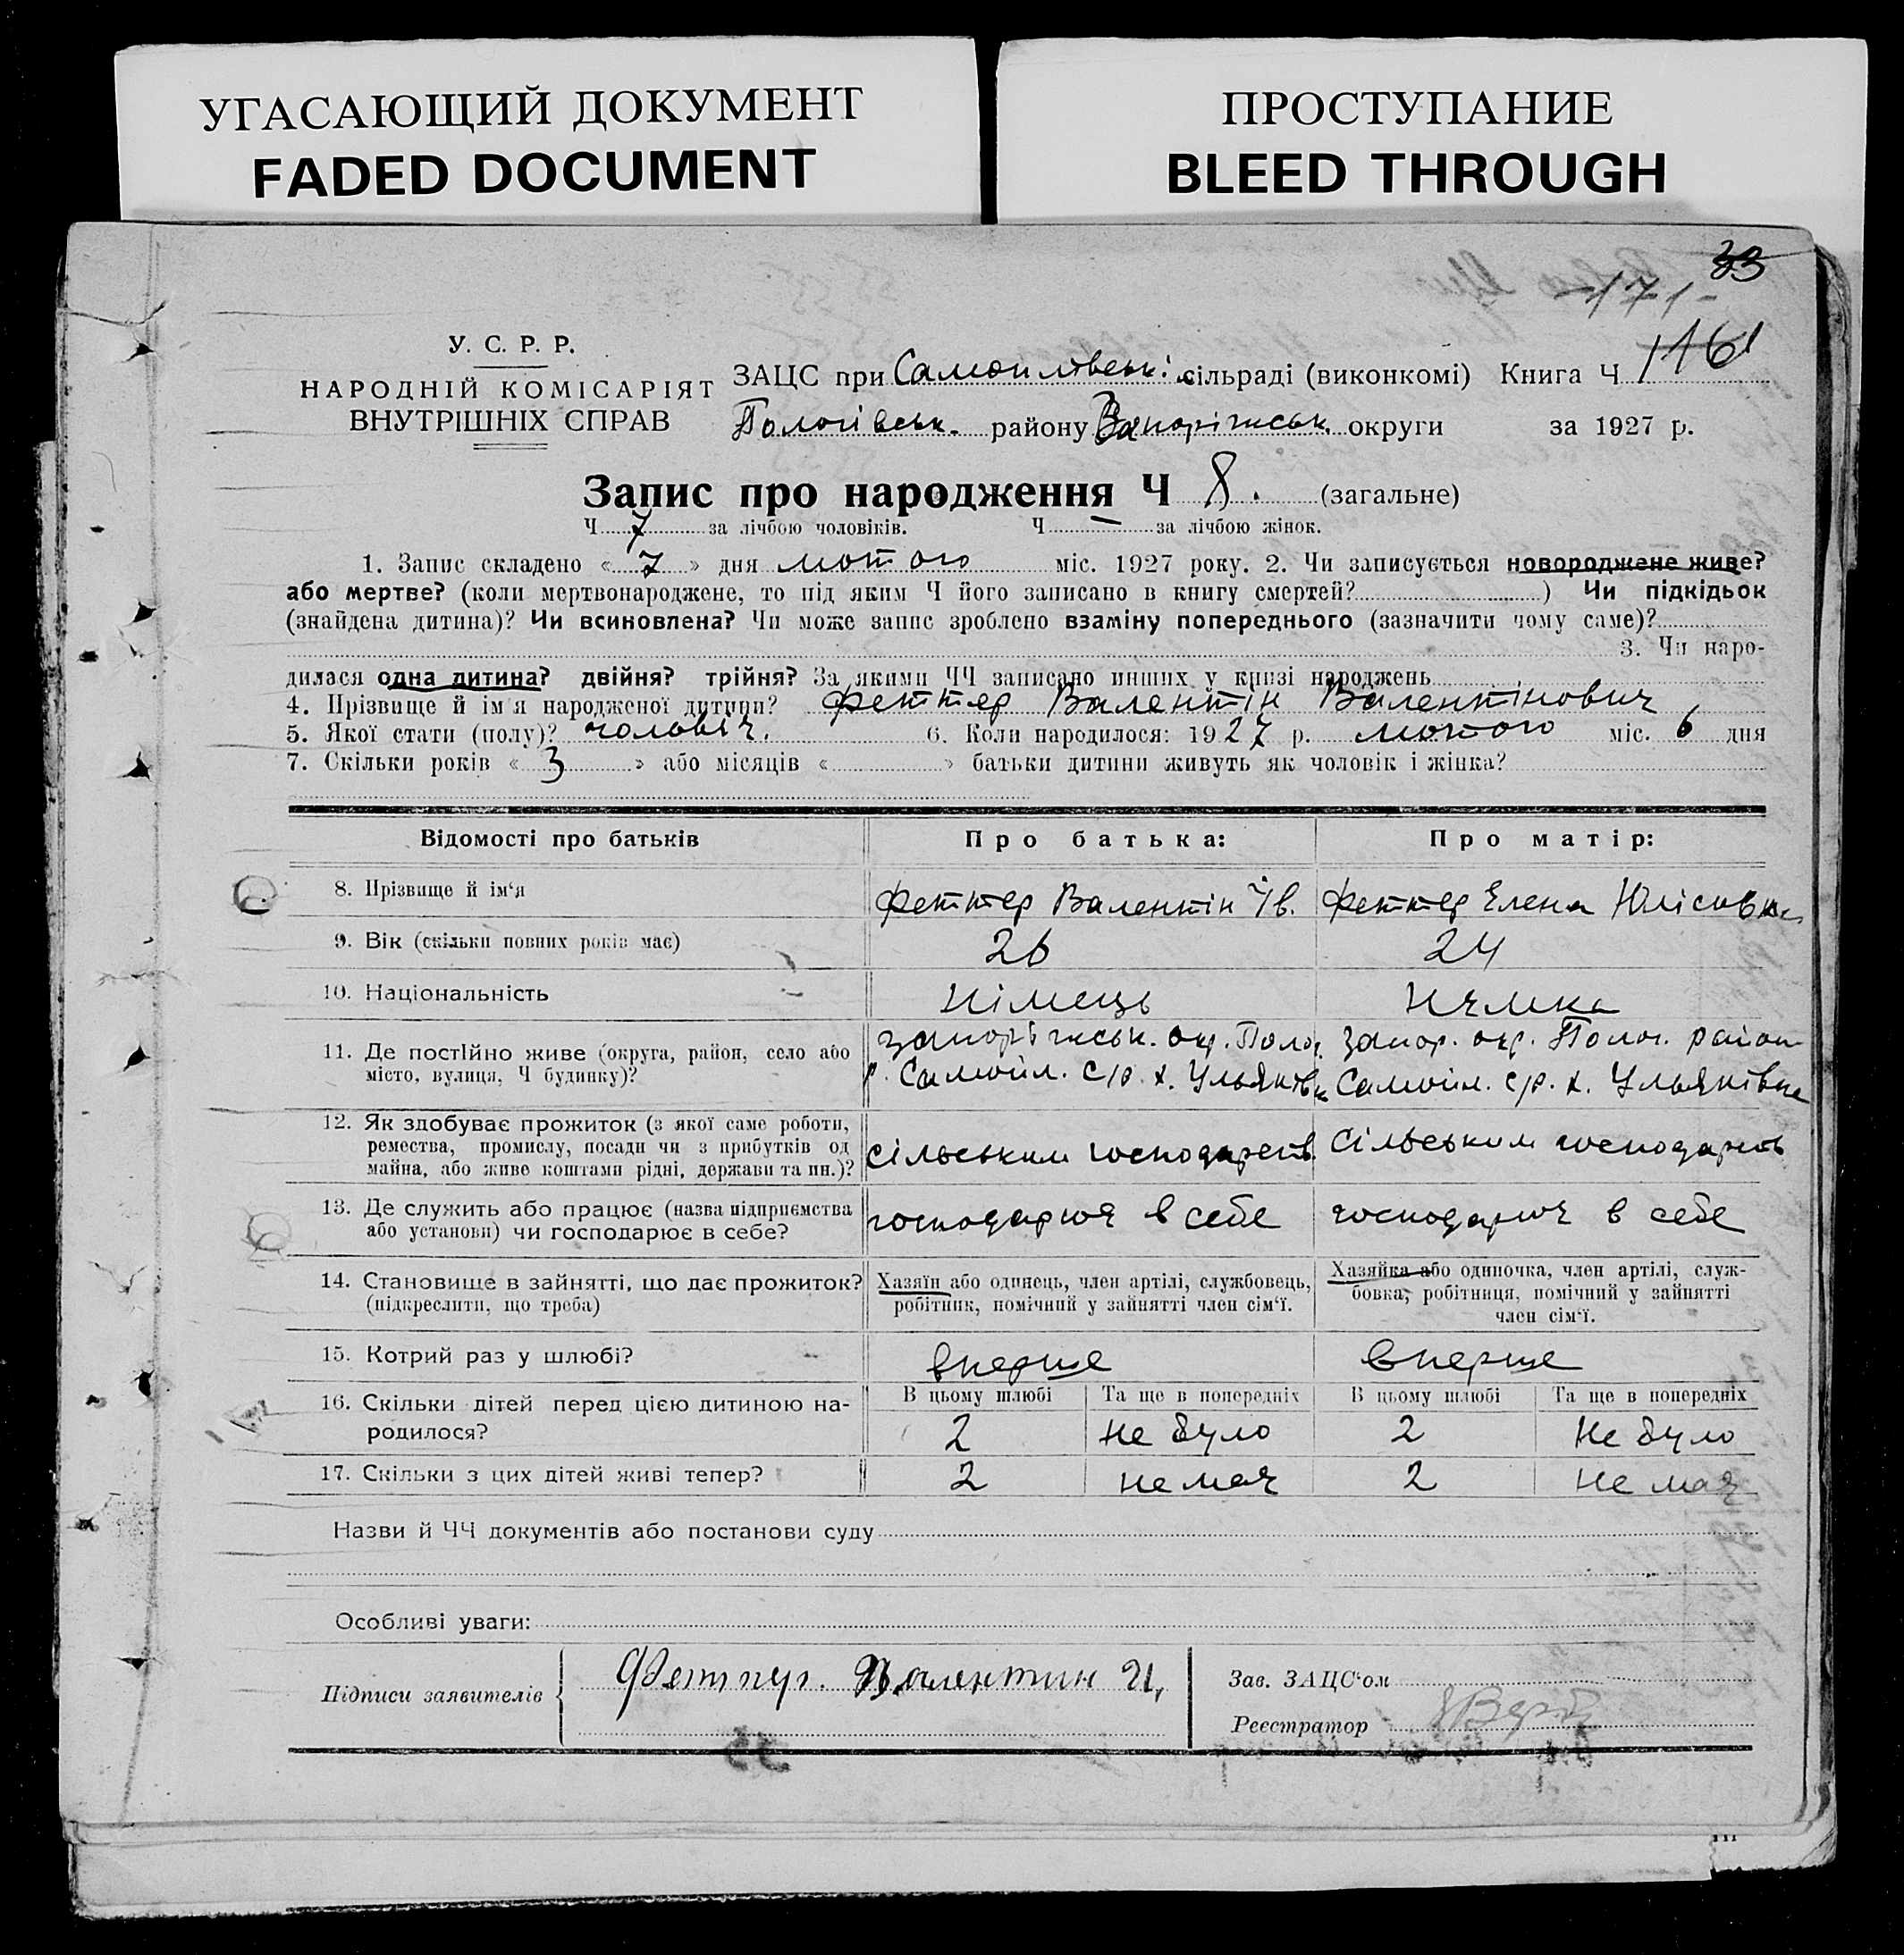 УГАСАЮЩИЙ ДОКУМЕНТ
FADED DOCUMENT
ПРОСТУПАНИЕ
BLEED THROUGH
33
-171-
У. С. Р. Р.
НАРОДНІЙ КОМІСАРІЯТ
ВНУТРІШНІХ СПРАВ
ЗАЦС при Самойлівські сільраді (виконкомі) Книга Ч
Пологівськ. району Запоріжськ. округи за 1927 р.
Запис про народження Ч 8. (загальне)
Ч 7 за лічбою чоловіків. Ч — за лічбою жінок.
1. Запис складено « 7 » дня лютого міс. 1927 року. 2. Чи записується новороджене живе?
або мертве? (коли мертвонароджене, то під яким Ч його записано в книгу смертей? ) Чи підкідьок
(знайдена дитина)? Чи всиновлена? Чи може запис зроблено взаміну попереднього (зазначити чому саме)?
3. Чи наро-
дилася одна дитина? двійня? трійня? За якими ЧЧ записано инших у книзі народжень
4. Прізвище й ім'я народженої дитини? Феттер Валентін Валентінович
5. Якої стати (полу)? чоловіч. 6. Коли народилося: 1927 р. лютого міс. 6 дня
7. Скільки років « 3 » або місяців « » батьки дитини живуть як чоловік і жінка?
Відомості про батьків Про батька: Про матір:
8. Прізвище й ім'я Феттер Валентін Ів. Феттер Елена
9. Вік (скільки повних років має) 26 24
10. Національність Німець Нємка
11. Де постійно живе (округа, район, село або Запоріжськ. окр. Полог. Запор. окр. Полог. район
місто, вулиця, Ч будинку)? р. Самойл. с/р. х. Ульянівка Самойл. с/р. х. Ульянівка
12. Як здобуває прожиток (з якої саме роботи,
ремества, промислу, посади чи з прибутків од сільським господарств. сільським господарств
майна, або живе коштами рідні, держави та ин.)?
13. Де служить або працює (назва підприємства господарює в себе господарює в себе
або установи) чи господарює в себе?
14. Становище в зайнятті, що дає прожиток? Хазяїн або одинець, член артілі, службовець, Хазяйка або одиночка, член артілі, служ-
(підкреслити, що треба) робітник, помічний у зайнятті член сім'ї. бовка, робітниця, помічний у зайнятті
член сім'ї.
15. Котрий раз у шлюбі? вперше вперше
В цьому шлюбі Та ще в попередніх В цьому шлюбі Та ще в попередніх
16. Скільки дітей перед цією дитиною на- 2 не було 2 не було
родилося?
17. Скільки з цих дітей живі тепер? 2 не має 2 не має
Назви й ЧЧ документів або постанови суду
Особливі уваги:
Підписи заявителів Валентин И.
Зав. ЗАЦС'ом
Реєстратор